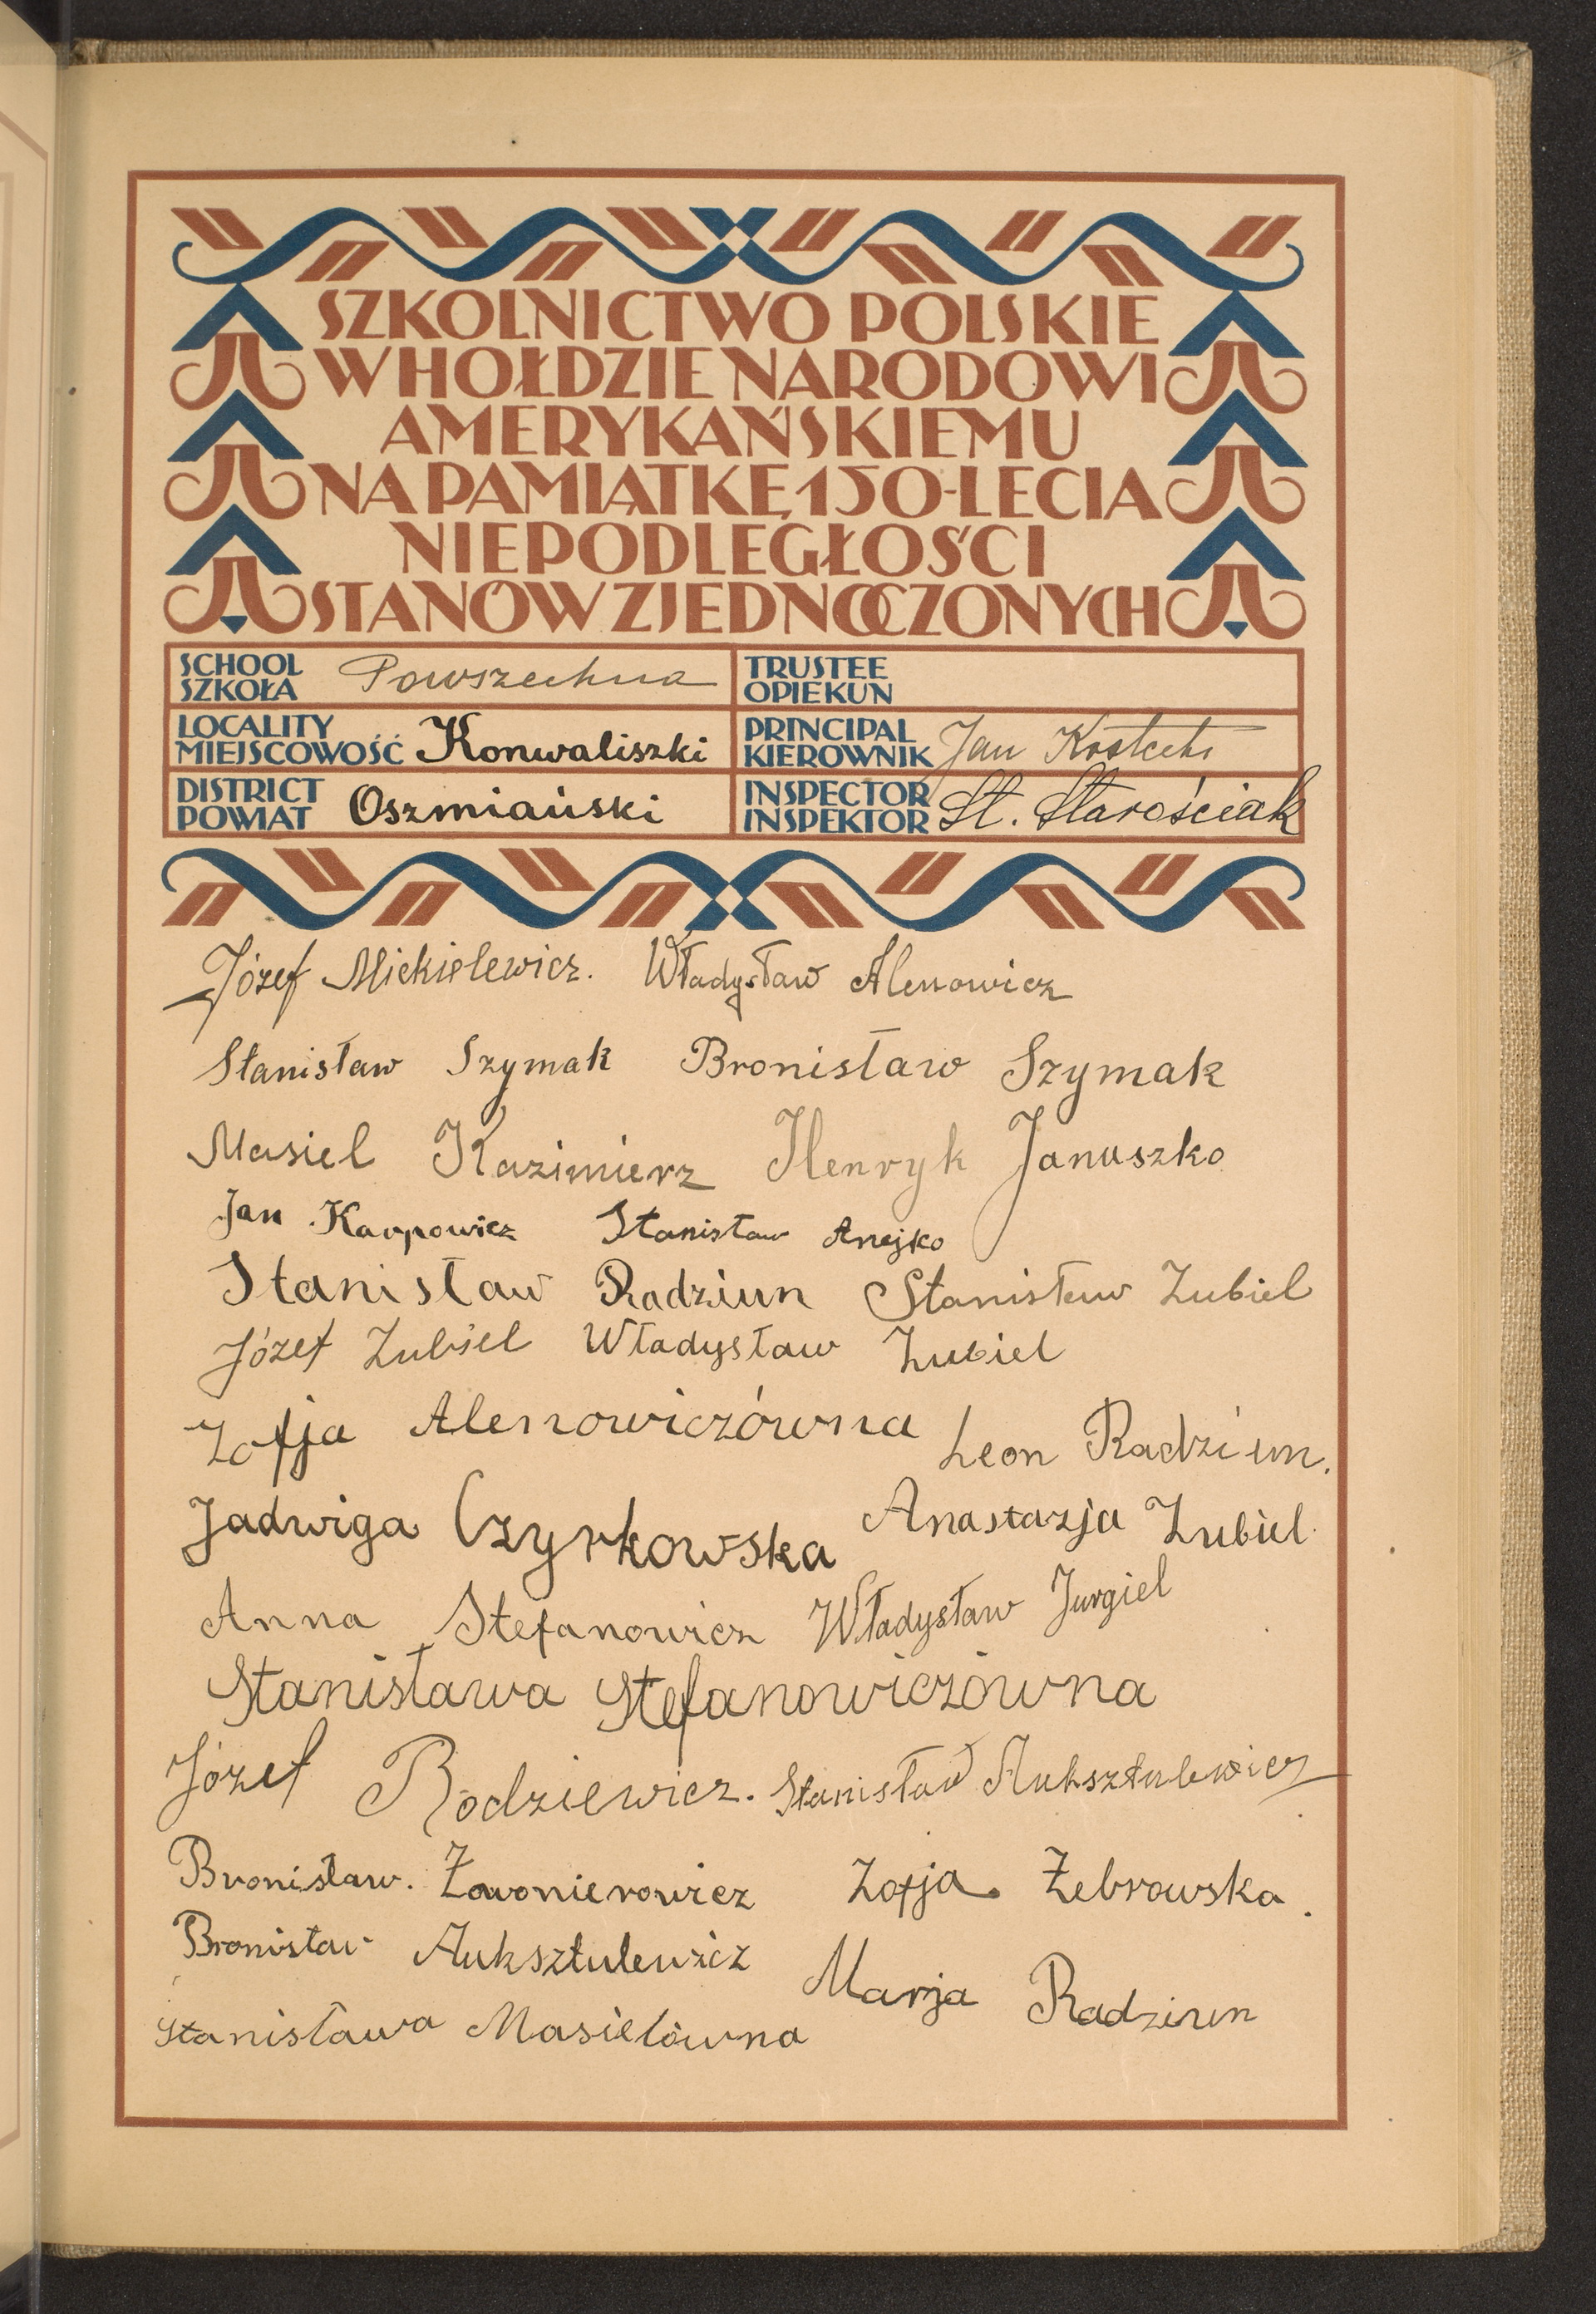 SZKOLNICTWO POLSKIE
W HOŁDZIE NARODOWI
AMERYKAŃSKIEMU
NA PAMIĄTKĘ 150-LECIA
NIEPODLEGŁOŚCI
STANÓW ZJEDNOCZONYCH
SCHOOL SZKOŁA Powszechna
TRUSTEE OPIEKUN
LOCALITY MIEJSCOWOŚĆ Konwaliszki
PRINCIPAL KIEROWNIK Jan Kostecki
DISTRICT POWIAT Oszmiański
INSPECTOR INSPEKTOR St. Starościak
Józef Mickielewicz. Władysław Alenowicz
Stanisław Szymak Bronisław Szymak
Masiel Kazimierz Henryk Januszko
Jan Karpowicz Stanisław Anejko
Stanisław Radziun Stanisław Zubiel
Józef Zubiel Władysław Zubiel
Zofja Alenowiczówna Leon Radziun.
Jadwiga Czyrkowska Anastazja Zubiel.
Anna Stefanowicz Władysław Jurgiel
Stanisława Stefanowiczówna
Józef Rodziewicz. Stanisław Auksztulewicz
Bronisław. Żawonierowicz Zofja Żebrowska.
Bronisław Auksztulewicz Marja Radziun
Stanisława Masielówna